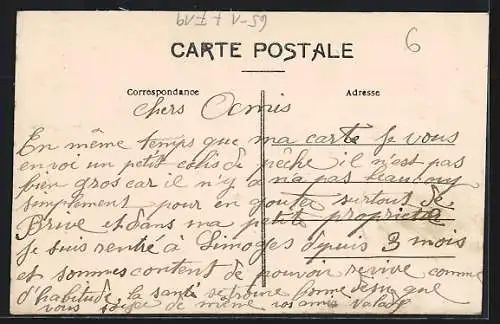 65-1 7 F19
6
CARTE POSTALE
Correspondance
Adresse
chers Ocmis
En même temps que ma carte Je vous
envoi un petit colis de pêche il n'est pas
bien gros car il n'y a n'a pas beaucoup
simplement pour en gouter surtout de
Brive et dans ma petite propriete
Je suis rentré à Limoges depuis 3 mois
et sommes content de pouvoir revive comme
d'habitude la santé se bonne
vous de même vos amis Valady